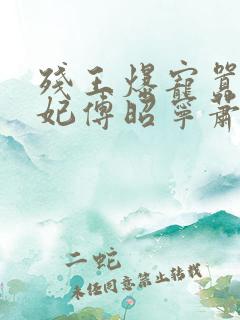 残王爆宠嚣
妃傅昭宁萧
二蛇
未经同意禁止转载